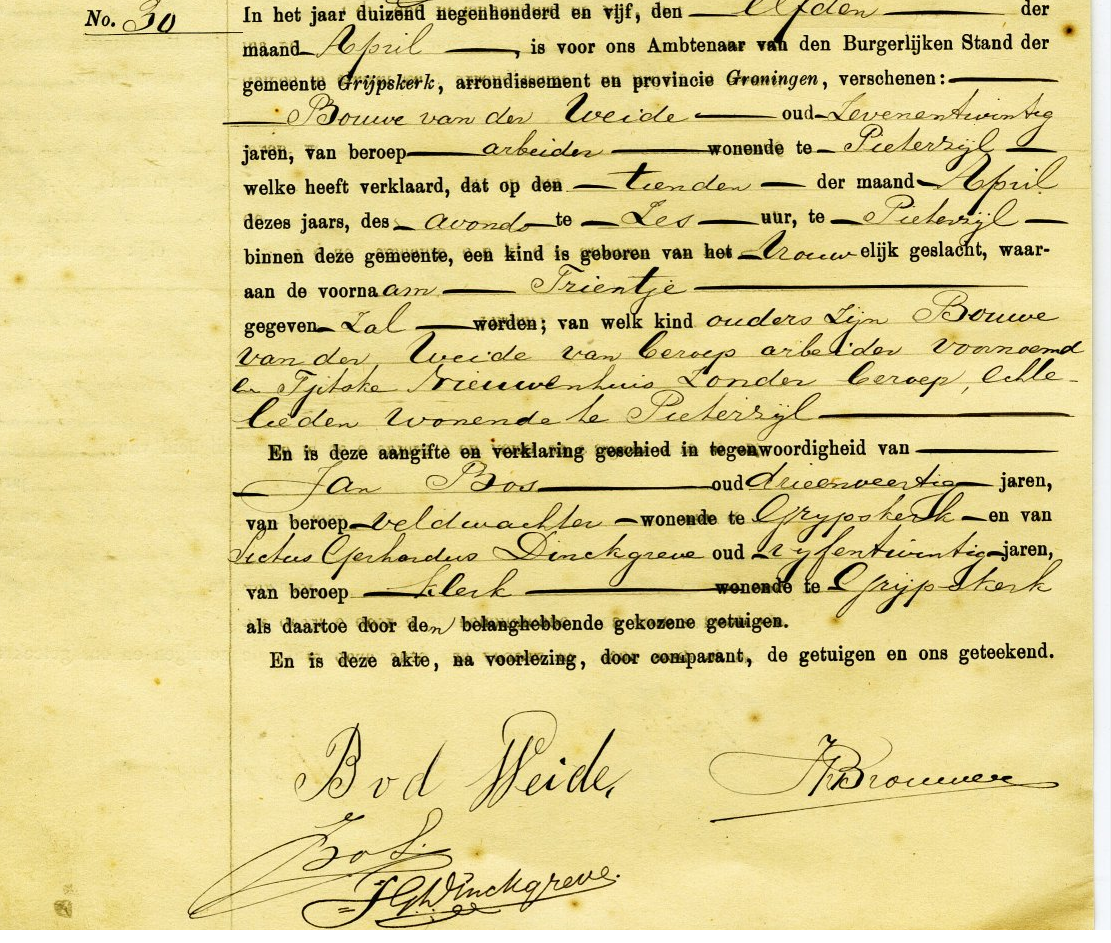 No. 30
In het jaar duizend negenhonderd en vijf, den elfden der
maand April, is voor ons Ambtenaar van den Burgerlijken Stand der
gemeente Grijpskerk, arrondissement en provincie Groningen, verschenen:
Bouwe van der Weide oud zevenentwintig
jaren, van beroep arbeider wonende te Pieterzijl
welke heeft verklaard, dat op den tienden der maand April
dezes jaars, des avonds te zes uur, te Pieterzijl
binnen deze gemeente, een kind is geboren van het vrouwelijk geslacht, waar-
aan de voornaam Trientje
gegeven zal worden; van welk kind ouders zijn Bouwe
van der Weide van beroep arbeider voornoemd
en Tjitske Nieuwenhuis zonder beroep, echte-
lieden wonende te Pieterzijl
En is deze aangifte en verklaring geschied in tegenwoordigheid van
Jan Bos oud drieenveertig jaren,
van beroep veldwachter wonende te Grijpskerk en van
Pictus Gerhardus Dinckgreve oud vyfentwintig jaren,
van beroep klerk wonende te Grijpskerk
als daartoe door den belanghebbende gekozene getuigen.
En is deze akte, na voorlezing, door comparant, de getuigen en ons geteekend.
B v d Weide,
Brouwer
Bos.
Dinckgreve.